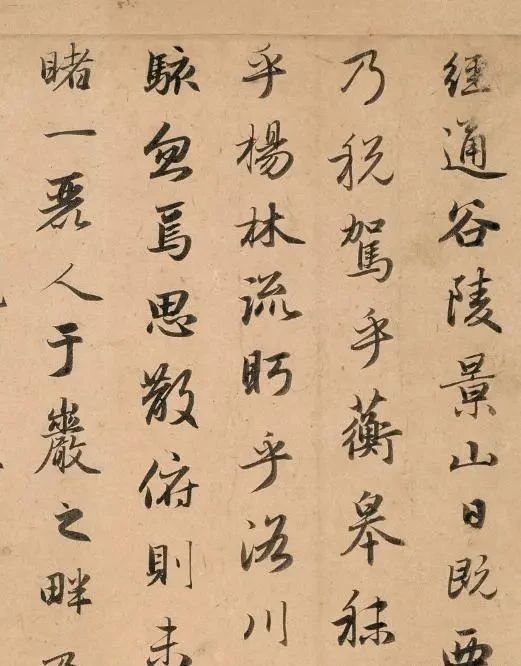 經通谷陵景山日既西
乃税駕乎蘅皋秣
乎楊林流眄乎洛川
駭忽焉思散俯則未
睹一麗人于巖之畔乃